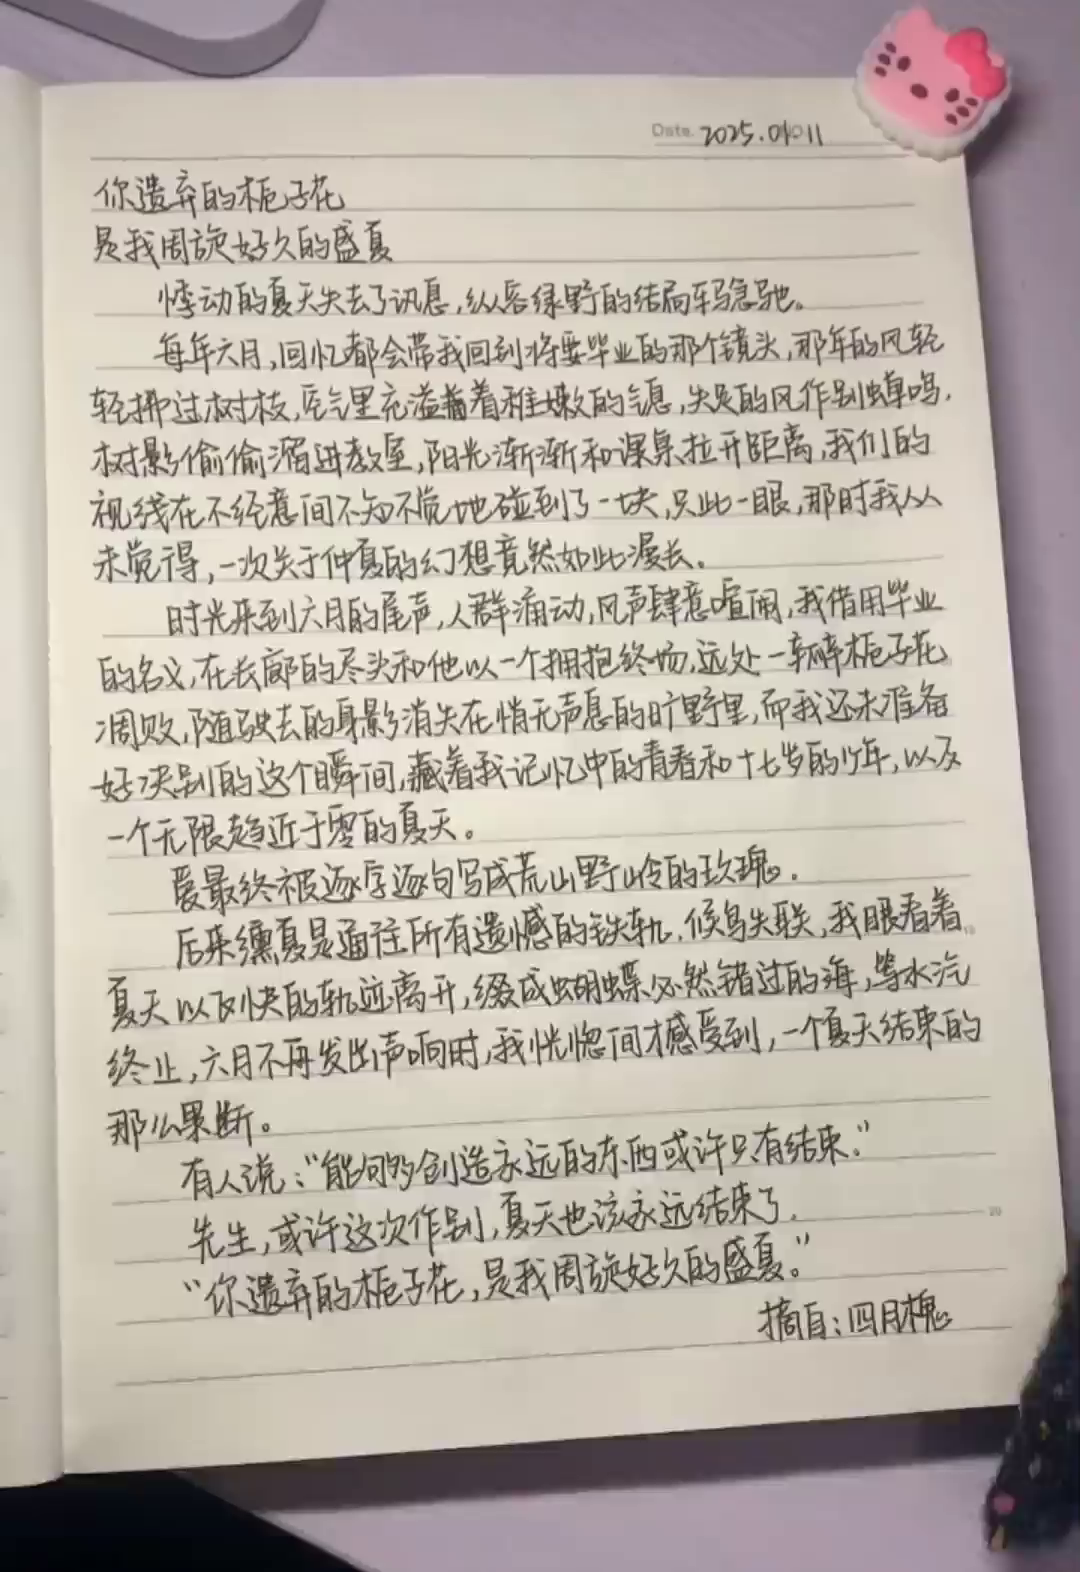 Date. 2025.01.11
你遗弃的栀子花
是我周旋好久的盛夏
悸动的夏天失去了讯息,纵容绿野的结局车马急驰。
每年六月,回忆都会带我回到将要毕业的那个镜头,那年的风轻
轻拂过树枝,空气里充溢着稚嫩的气息,失足的风作别蝉鸣.
树影偷偷溜进教室,阳光渐渐和课桌拉开距离,我们的
视线在不经意间不知不觉地碰到了一块,只此一眼,那时我从
未觉得,一次关于仲夏的幻想竟然如此漫长。
时光来到六月的尾声,人群涌动,风声肆意喧闹,我借用毕业
的名义,在长廊的尽头和他以一个拥抱终场,远处一轶碎栀子花
凋败,随驶去的身影消失在悄无声息的旷野里,而我还未准备
好决别的这个瞬间,藏着我记忆中的青春和十七岁的少年,以及
一个无限趋近于零的夏天。
爱最终被逐字逐句写成荒山野岭的玫瑰.
后来纁夏是通往所有遗憾的铁轨.候鸟失联,我眼看着
夏天以极快的轨迹离开,缀成蝴蝶必然错过的海,等水汽
终止,六月不再发出声响时,我恍惚间才感受到,一个夏天结束的
那么果断。
有人说:“能够创造永远的东西或许只有结束.”
先生,或许这次作别,夏天也该永远结束了.
“你遗弃的栀子花,是我周旋好久的盛夏。”
摘自:四月槐